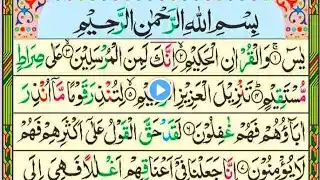 بِسْمِ اللهِ الرَّحْمٰنِ الرَّحِيْمِ
يٰسٓ ۚ وَالْقُرْاٰنِ الْحَكِيْمِ ۙ اِنَّكَ لَمِنَ الْمُرْسَلِيْنَ ۙ عَلٰى صِرَاطٍ
مُّسْتَقِيْمٍ ؕ تَنْزِيْلَ الْعَزِيْزِ الرَّحِيْمِ ۙ لِتُنْذِرَ قَوْمًا مَّاۤ اُنْذِرَ
اٰبَآؤُهُمْ فَهُمْ غٰفِلُوْنَ لَقَدْ حَقَّ الْقَوْلُ عَلٰٓى اَكْثَرِهِمْ فَهُمْ
لَا يُؤْمِنُوْنَ اِنَّا جَعَلْنَا فِيْۤ اَعْنَاقِهِمْ اَغْلٰلًا فَهِيَ اِلَى